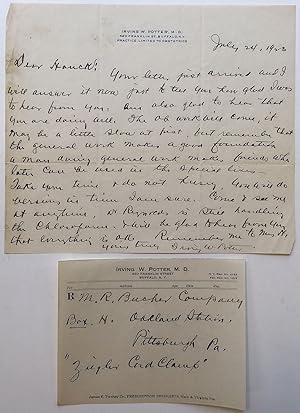 IRVING W. POTTER, M. D.
420 FRANKLIN ST. BUFFALO, N.Y.
PRACTICE LIMITED TO OBSTETRICS
July 24, 1922
Dear Houck:
Your letter just arrived and I
will answer it now just to tell you how glad I was
to hear from you. Am also glad to hear that
you are doing well. The O.B. work will come, it
may be a little slow at first, but remember that
the general work makes a good foundation
a man doing general work makes friends who
later can be used in the special line—
Take your time & do not hurry, you will do
versions in time I am sure. Come & see me
at anytime, Dr Reynolds is still handling
the Chloroform & will be glad to hear from you
that everything is ok. Remember me to Mrs H.
Yours truly Irving W. Potter
IRVING W. POTTER, M. D.
420 FRANKLIN STREET
BUFFALO, N.Y.
R M. R. Bucher Company
Box. H. Oakland Station,
Pittsburgh Pa.
"Ziegler Cord Clamp"